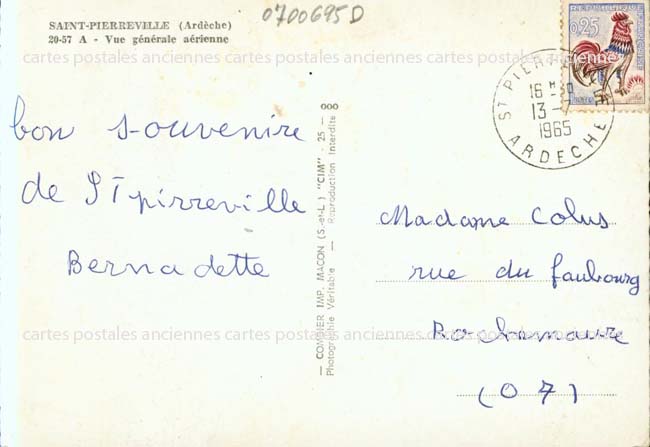 SAINT-PIERREVILLE (Ardèche)
20-57 A - Vue générale aérienne
0700695D
REPUBLIQUE FRANÇAISE
0,25
POSTES
ST PIERREVILLE
16 H 30
13 -
1965
ARDECHE
cartes postales anciennes cartes postales anciennes cartes postales anciennes
bon souvenire
de St pirreville
Bernadette
— COMBIER IMP. MACON (S.-et-L.) "CIM" - 25 — 000
Photographie Véritable — Reproduction Interdite
Madame Colus
rue du faubourg
Rochemaure
(07)
cartes postales anciennes cartes postales anciennes cartes postales anciennes